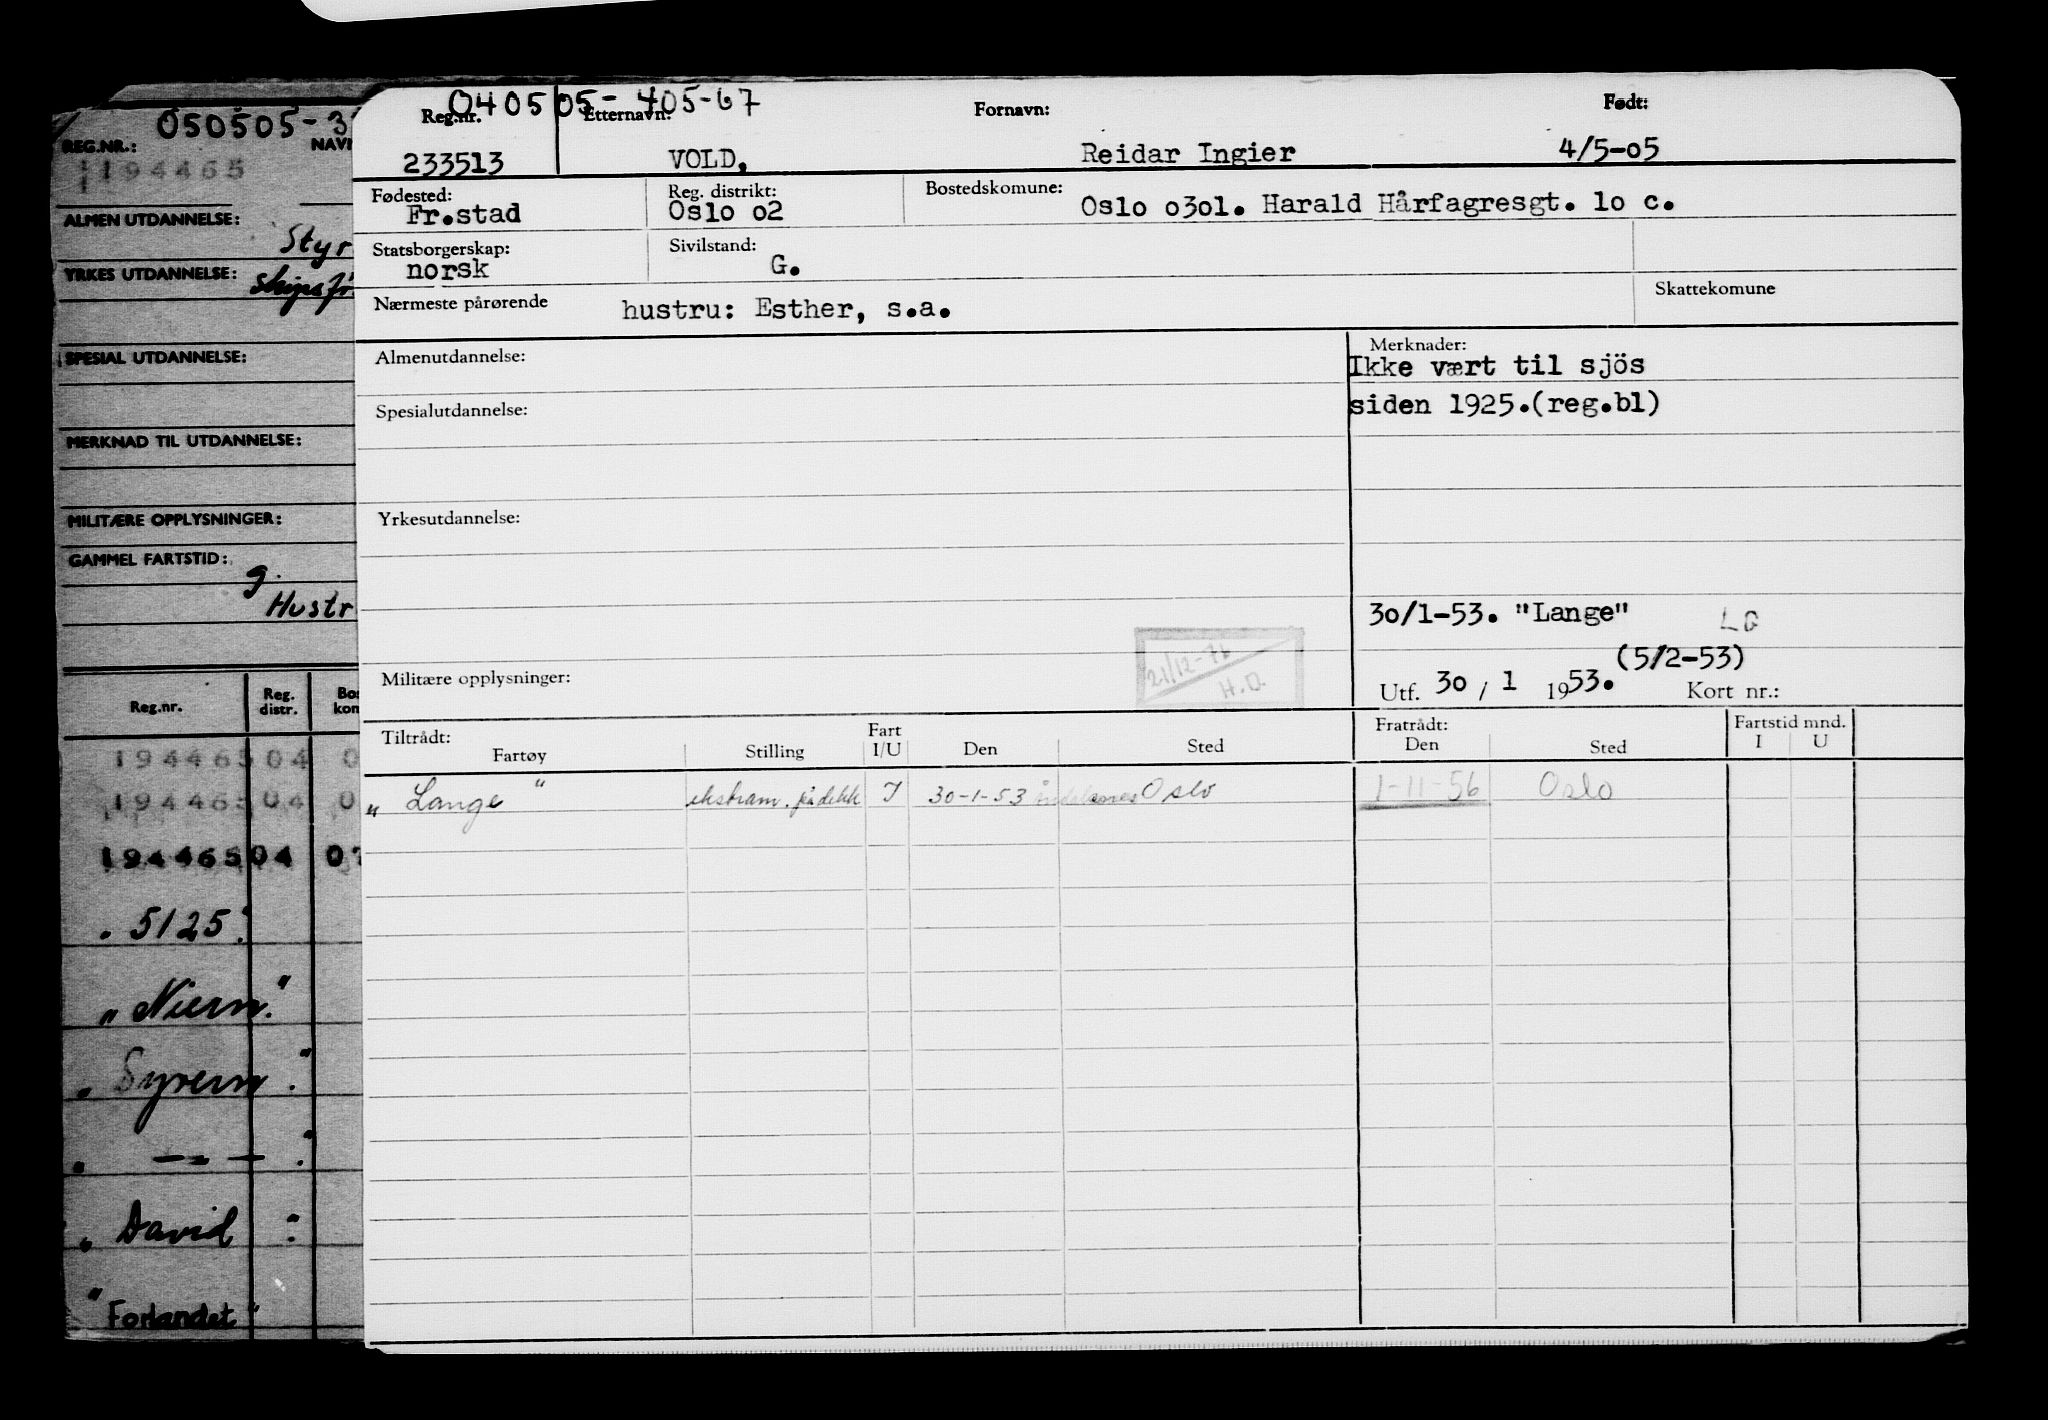 040505-405-67
Reg.nr. Etternavn: Fornavn: Født:
233513 VOLD, Reidar Ingier 4/5-05
Fødested: Reg. distrikt: Bostedskomune:
Fr.stad Oslo o2 Oslo o3ol. Harald Hårfagresgt. lo c.
Statsborgerskap: Sivilstand:
norsk G.
Nærmeste pårørende hustru: Esther, s.a. Skattekomune
Almenutdannelse: Merknader:
Ikke vært til sjös
Spesialutdannelse: siden 1925.(reg.bl)
Yrkesutdannelse:
30/1-53. "Lange" LG
21/12-76
H.O.
(5/2-53)
Militære opplysninger: Utf. 30 / 1 1953. Kort nr.:
Tiltrådt: Fart Fratrådt: Fartstid mnd.
Fartøy Stilling I/U Den Sted Den Sted I U
"Lange" ekstram. på dekk I 30-1-53 Oslo 1-11-56 Oslo
050505-3
REG.NR.: NAV
194465
ALMEN UTDANNELSE:
Styr
YRKES UTDANNELSE:
skipsf
SPESIAL UTDANNELSE:
MERKNAD TIL UTDANNELSE:
MILITÆRE OPPLYSNINGER:
GAMMEL FARTSTID:
g.
Hustr
Reg.nr. Reg. distr. Bo kon
194465 04 0
194465 04 0
194465 04 07
" 5125"
"Niern"
"Syrern"
" — " — "
"David"
"Forlandet"